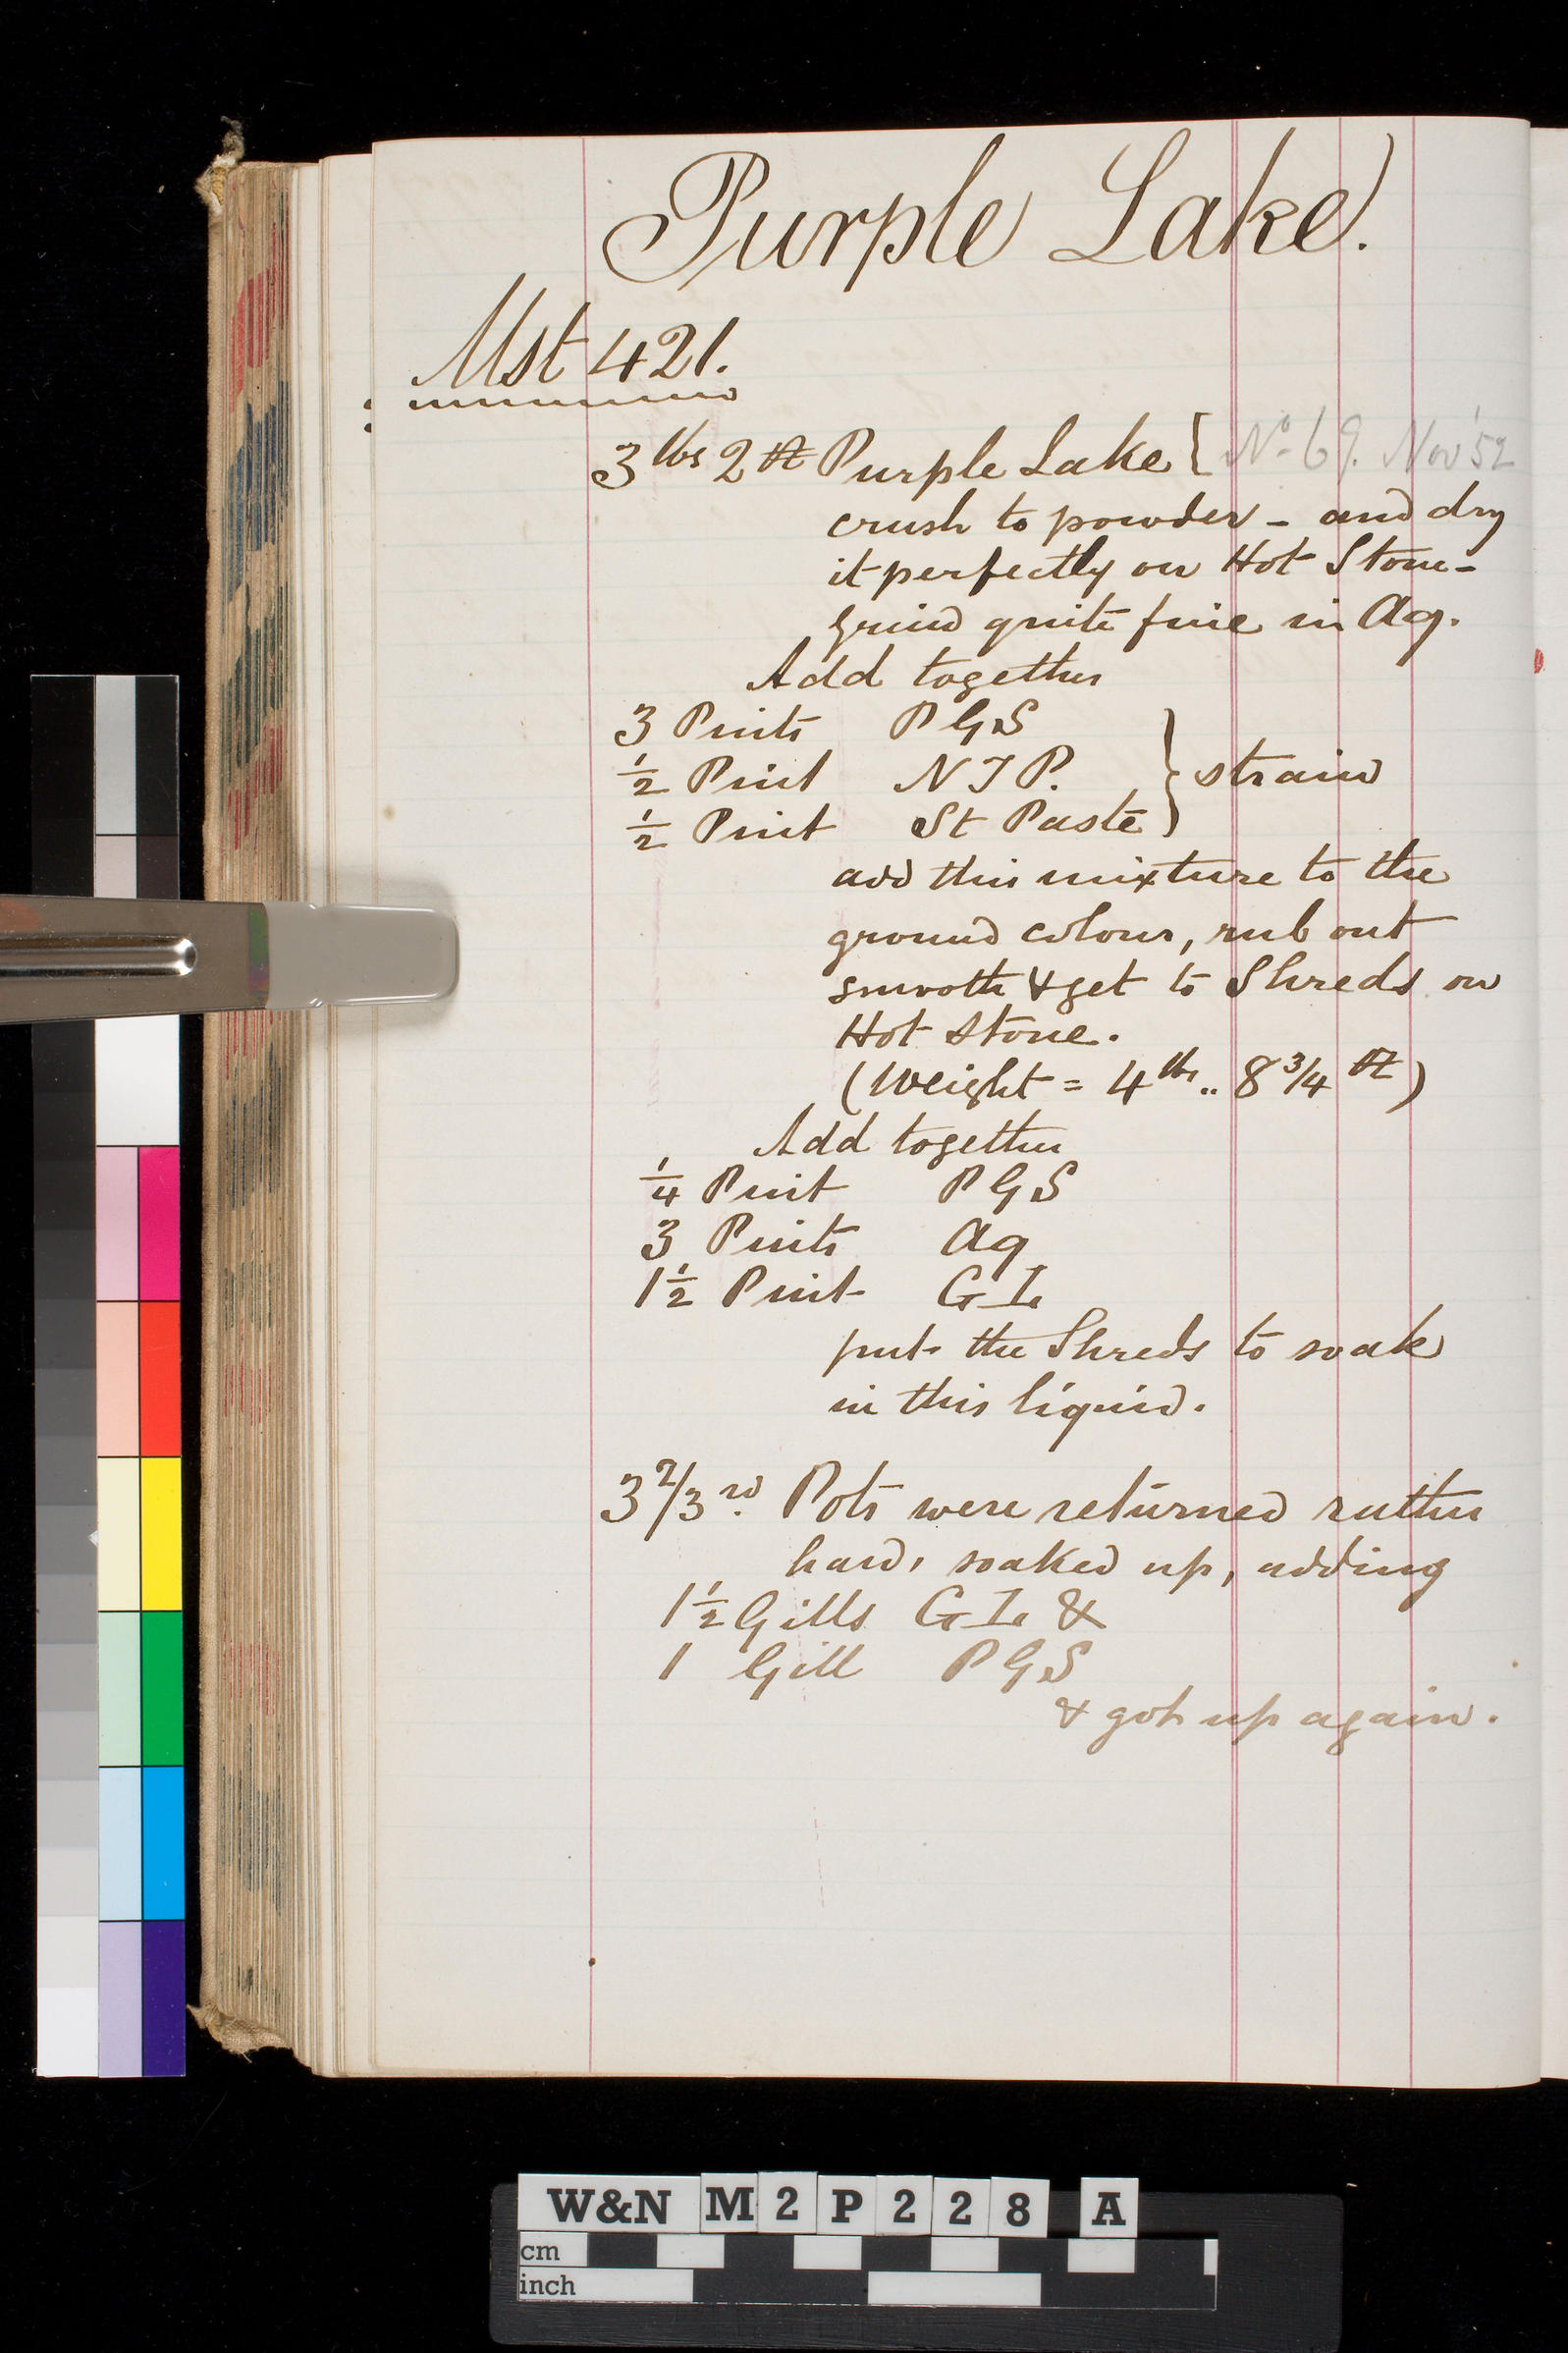 Purple Lake.
Mst 421.
3 lbs 2 oz Purple Lake { No 69. Nov '52
crush to powder - and dry
it perfectly on Hot Stone -
Grind quite fine in Aq.
Add together
3 Pints P G S
½ Pint N T P. } strain
½ Pint St Paste
add this mixture to the
ground colour, rub out
smooth & get to Shreds on
Hot Stone.
(Weight = 4 lbs .. 8 ¾ oz)
Add together
¼ Pint P G S
3 Pints Aq
1½ Pint G I
put the Shreds to soak
in this liquid.
3 2/3rd. Pots were returned rather
hard, soaked up, adding
1½ Gills G I &
1 Gill P G S
& got up again.
W&N M2P228 A
cm
inch